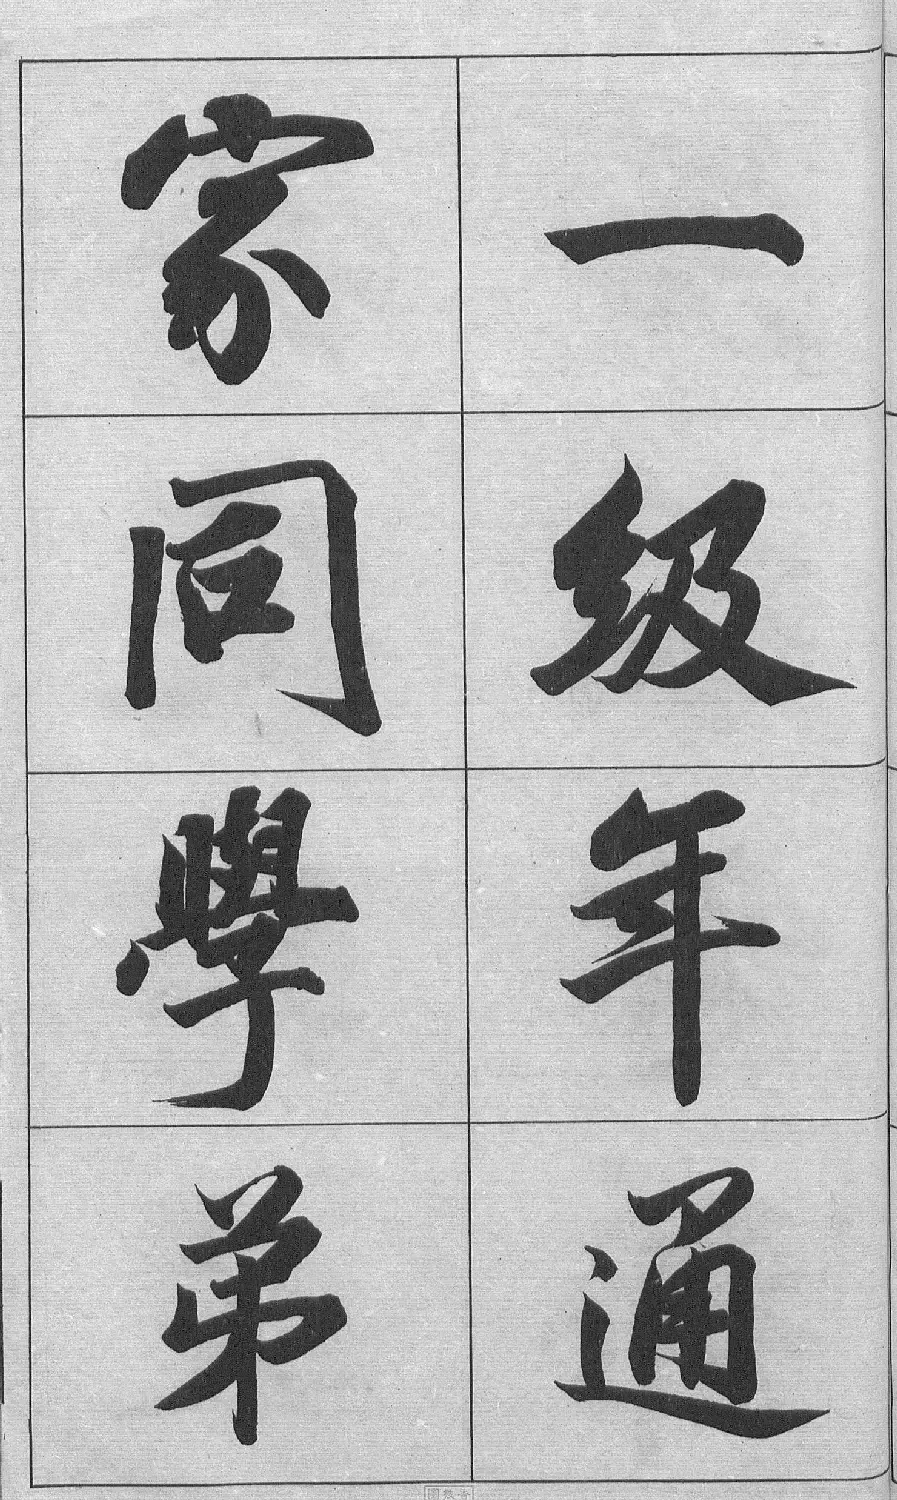 一級年通
家同學弟